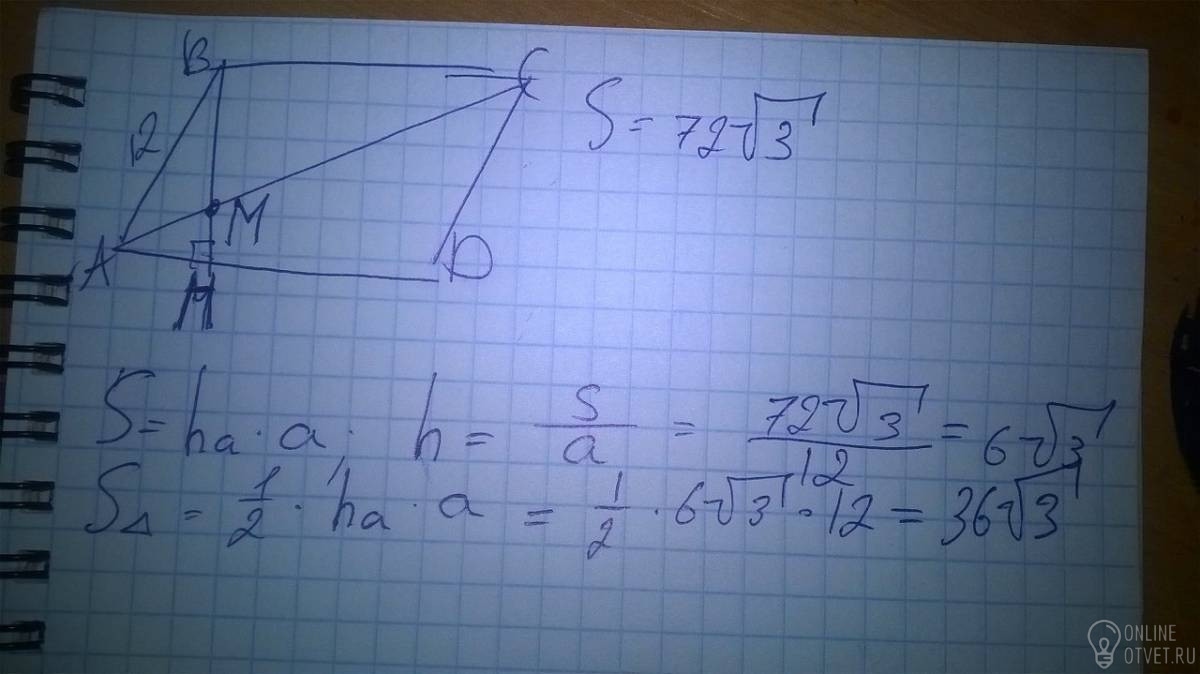 B
C
12
S = 72√3
M
A
D
H
S = hₐ · a; h = S/a = 72√3/12 = 6√3
S△ = 1/2 · hₐ · a = 1/2 · 6√3 · 12 = 36√3
ONLINE
OTVET.RU